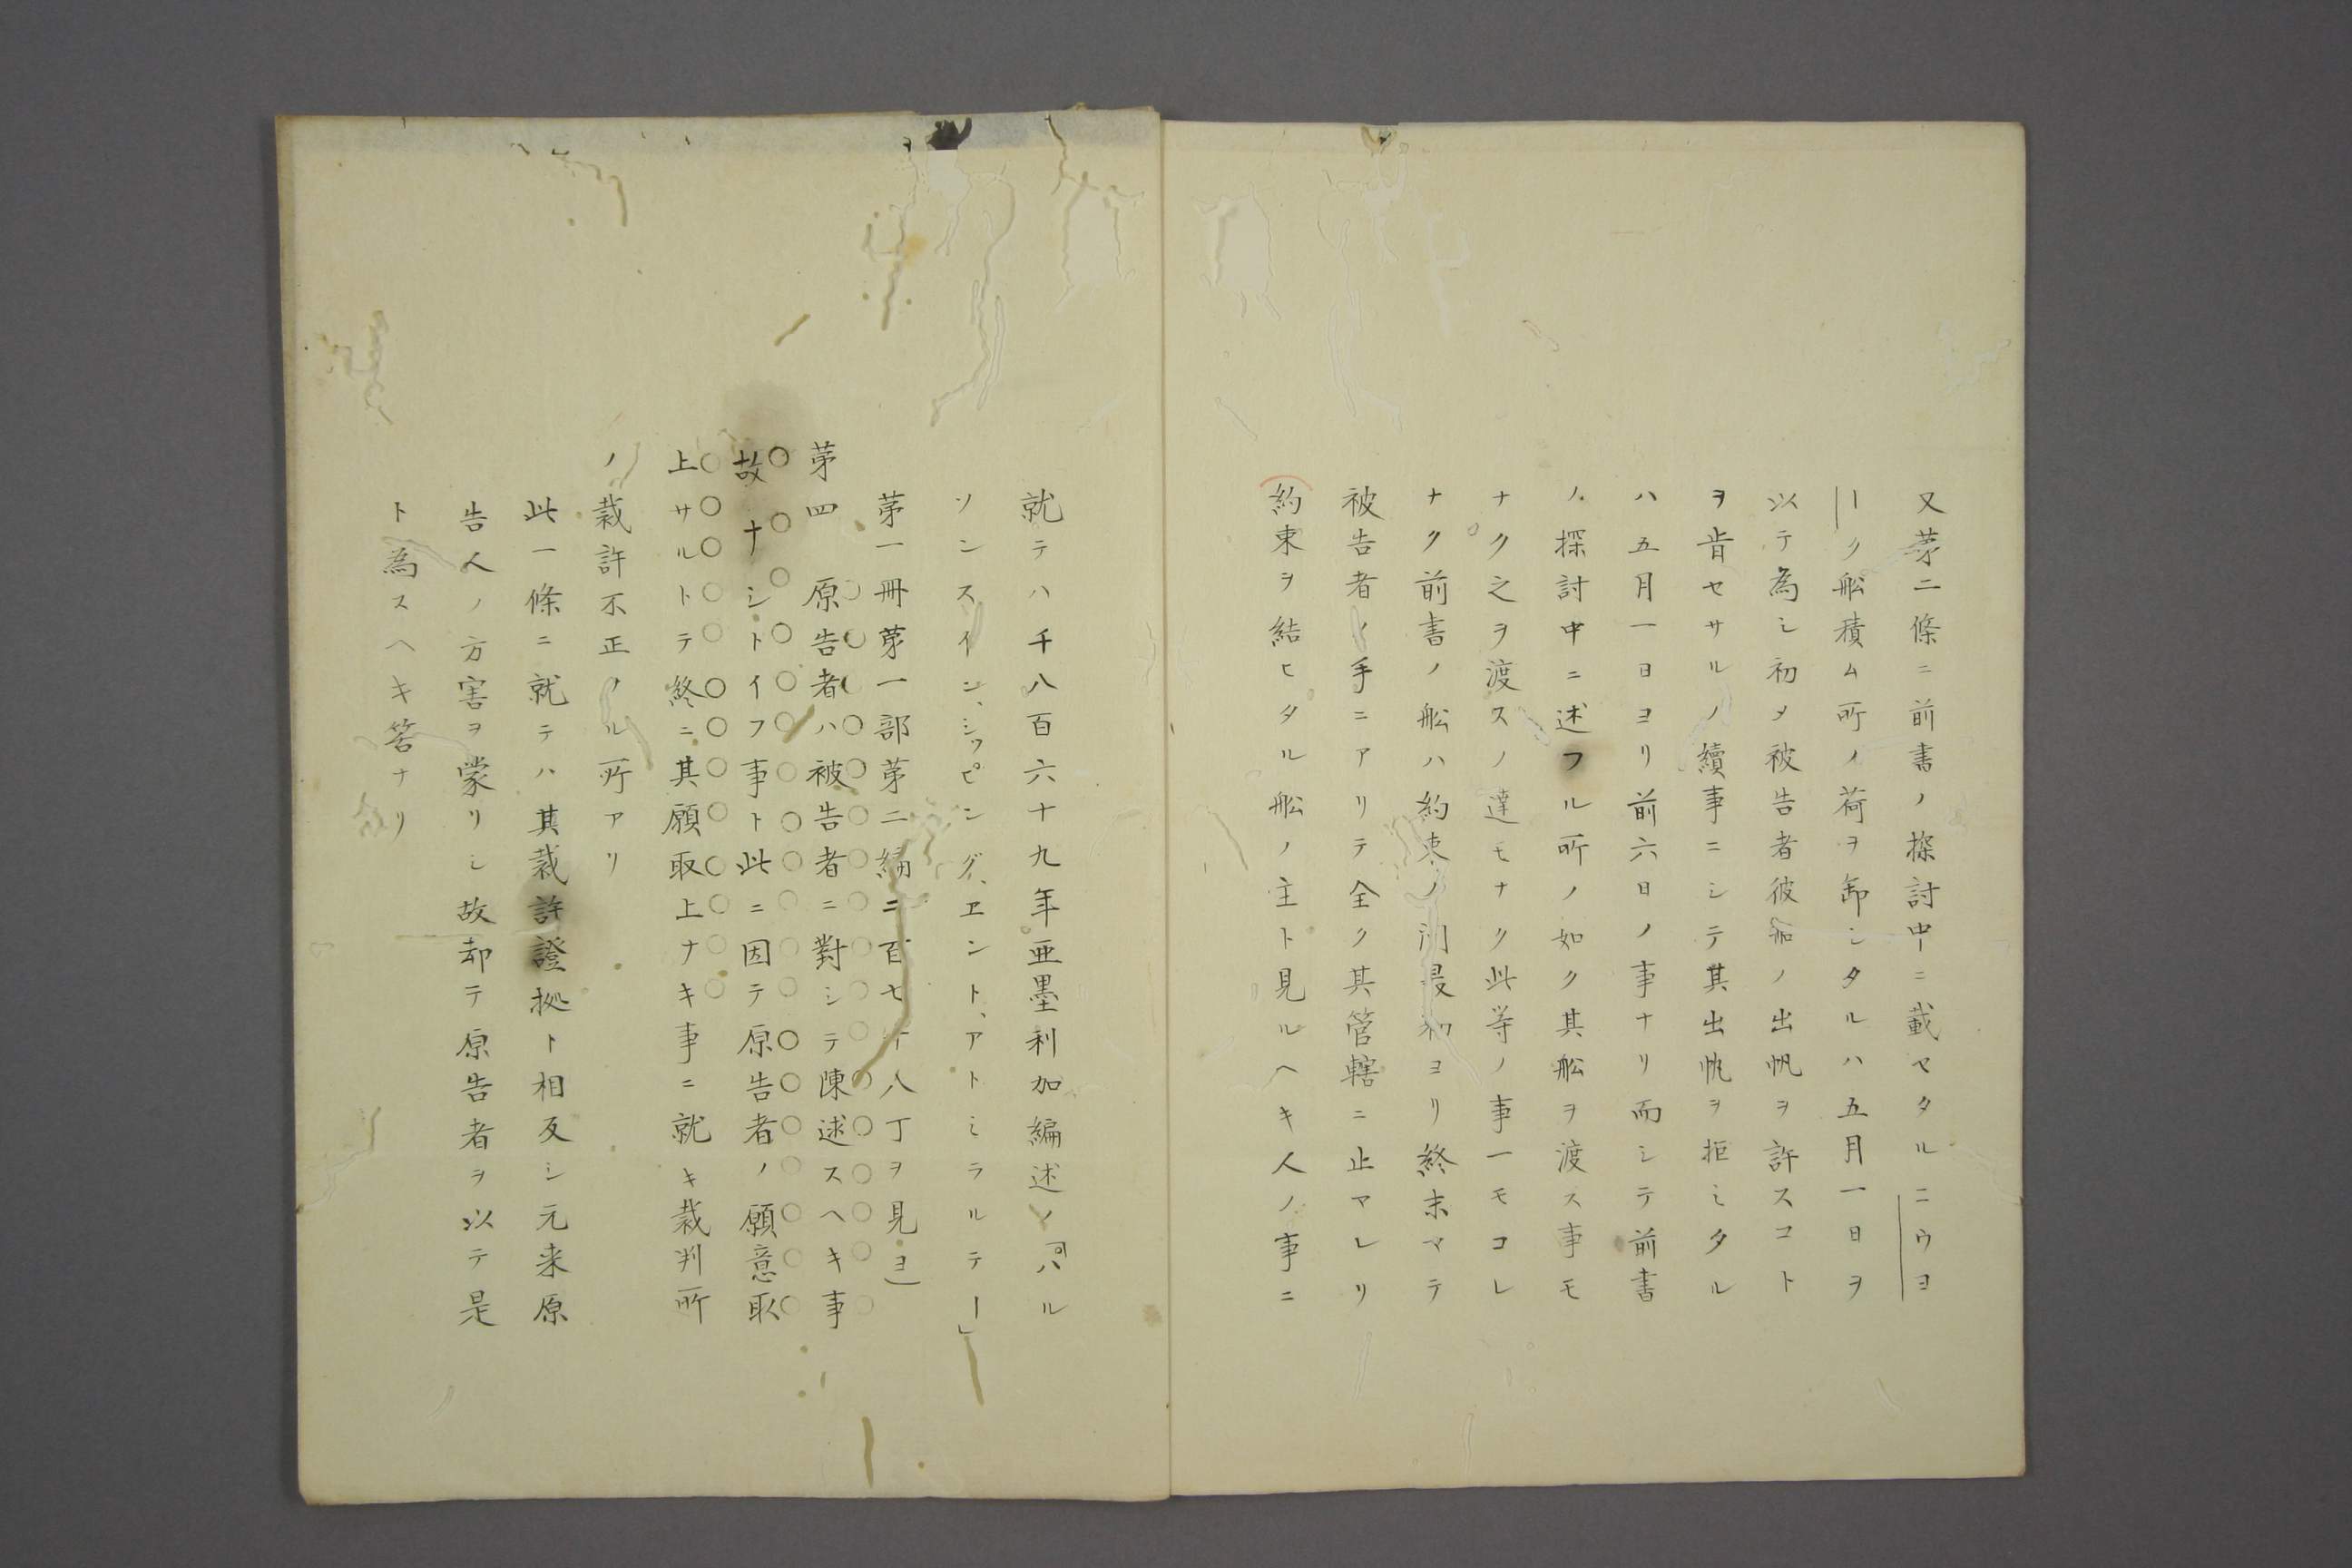 又苐二條ニ前書ノ探討中ニ載セタルニウヨ
ーク船積ム所ノ荷ヲ卸シタルハ五月一日ヲ
以テ為シ初メ被告者彼船ノ出帆ヲ許スコト
ヲ肯セサルノ續事ニシテ其出帆ヲ拒ミタル
ハ五月一日ヨリ前六日ノ事ナリ而シテ前書
ノ探討中ニ述フル所ノ如ク其舩ヲ渡ス事モ
ナク之ヲ渡スノ達モナク此等ノ事一モコレ
ナク前書ノ舩ハ約束ノ間最初ヨリ終末マテ
被告者ノ手ニアリテ全ク其管轄ニ止マレリ
約束ヲ結ヒタル舩ノ主ト見ルヘキ人ノ事ニ
就テハ千八百六十九年亜墨利加編述ノ可ハル
ソンスイン、シツピング、エント、アトミラルテー」
苐一冊苐一部苐二編ニ百七十八丁ヲ見ヨ)
苐四 原告者ハ被告者ニ對シテ陳述スヘキ事
故ナシトイフ事ト此ニ因テ原告者ノ願意取
上サルトテ終ニ其願取上ナキ事ニ就キ裁判所
ノ裁許不正ナル所アリ
此一條ニ就テハ其裁許證拠ト相反シ元来原
告人ノ方害ヲ蒙リシ故却テ原告者ヲ以テ是
ト為スヘキ筈ナリ